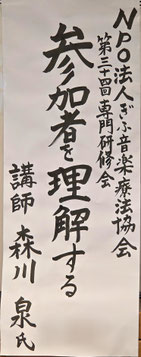 NPO法人ぎふ音楽療法協会
第三十四回専門研修会
参加者を理解する
講師 森川 泉氏